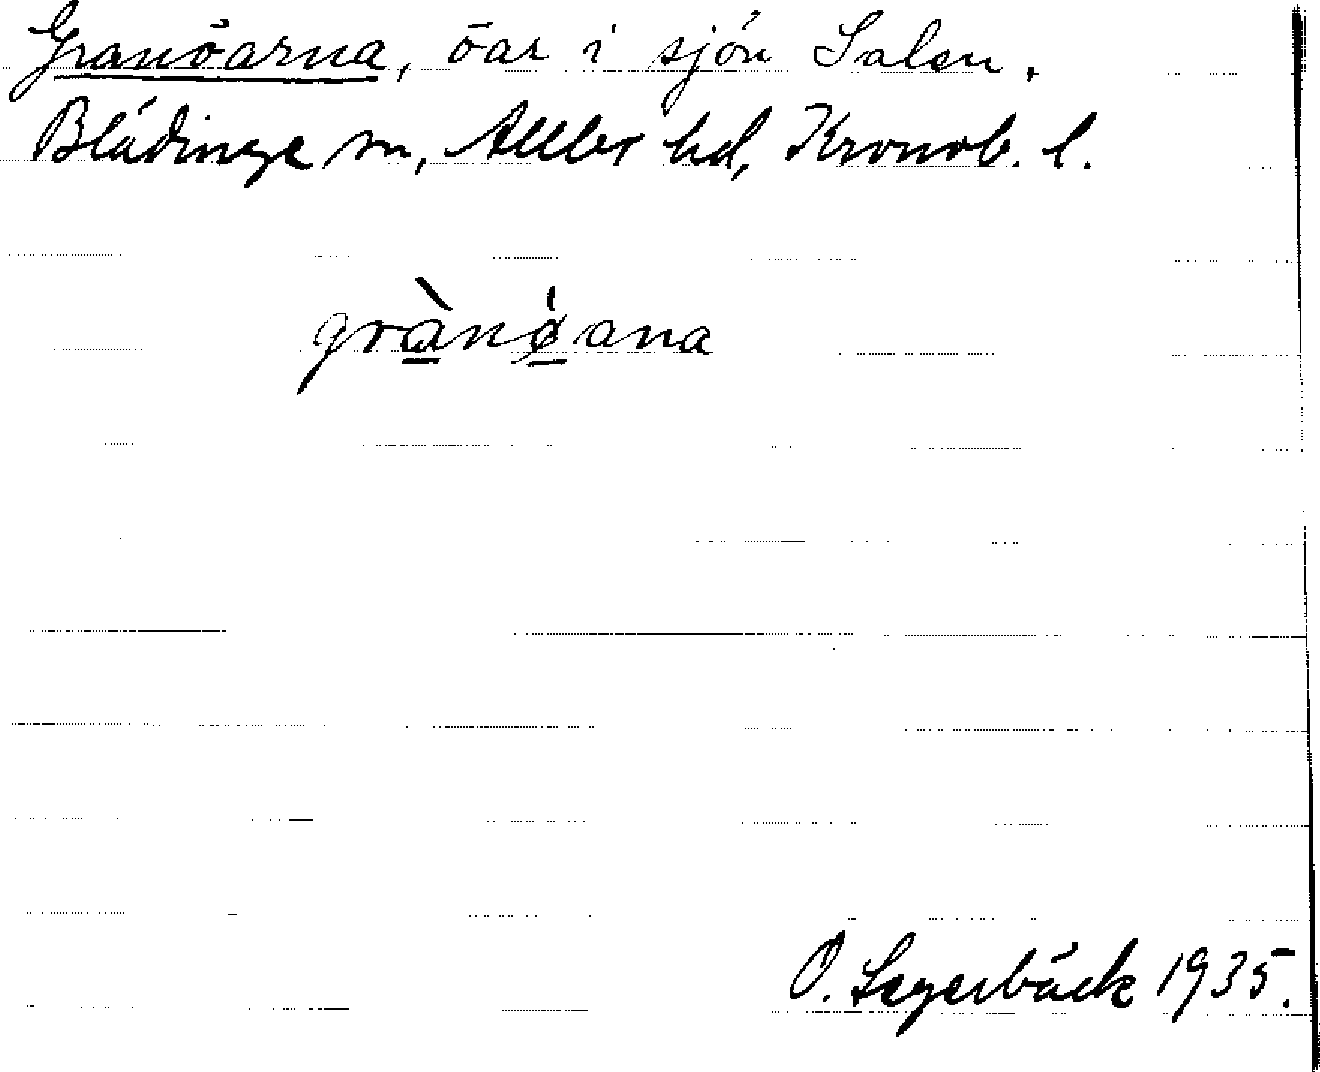 Granöarna, öar i sjön Salen,
Blädinge sn, Allbo hd, Kronob. l.
grànǿana
O. Segerbäck 1935.